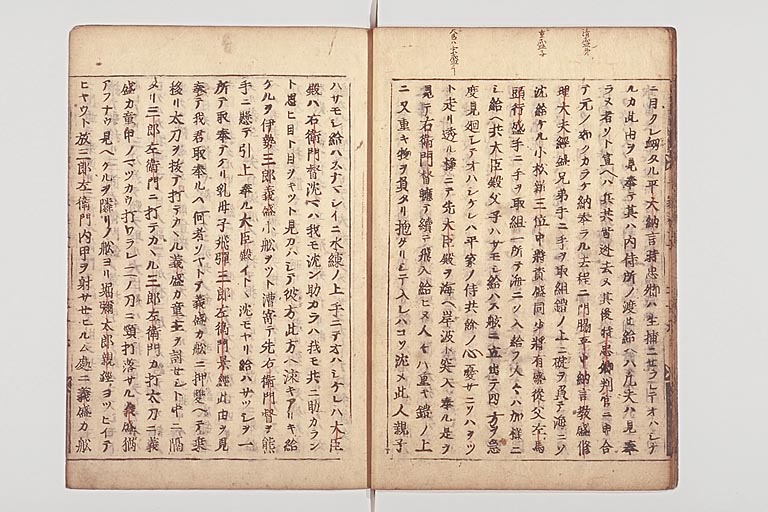 清盛弟
重盛子
二目クレ タル平大納言時忠卿ハ生捕ニセラレテオハシケ
ルカ此由ヲ見奉テ其ハ内侍所ノ渡ヒ給ハ凡夫ハ見奉
ラヌ者ソト宣ヘハ兵共皆逃去ヌ其後時忠卿判官ニ申合
テ元ノ如クカラケ納奉ラル去程ニ門脇平中納言教盛修
理大夫經盛兄弟手ニ手ヲ取組鎧ノ上ニ碇ヲ負テ海ニソ
沈給ケル小松新三位中將資盛同少將有盛從父左馬
頭行盛手ニ手ヲ取組一所テ海ニソ入給フ人々ハ加樣ニ
シ給ヘ共大臣殿父子ハサモシ給ハス舷ニ立出テ四方ヲ急
度見廻シテオハシケレハ平家ノ侍共餘ノ心憂サニソハヲツ
ト走リ透ル樣ニテ先大臣殿ヲ海ヘ岸波ト突入奉ル是ヲ
見テ右衛門督軈テ續テ飛入給ヒヌ人々ハ重キ鎧ノ上
ニ又重キ物ヲ負タリ抱タリシテ入レハコソ沈メ此人親子
ハサモシ給ハスナマシイニ水練ノ上手ニテオハシケレハ大臣
殿ハ右衛門督沈マハ我モ沈ン助カラハ我モ共ニ助カラン
ト思ヒ目ト目ヲキツト見カハシテ彼方此方ヘ泳キアリキ給
ケルヲ伊勢三郎義盛小舩ヲツト漕寄テ先右衛門督ヲ熊
手ニ懸テ引上奉ル大臣殿イトヽ沈モヤリ給ハサツシヲ一
所テ取奉テケリ乳母子飛驒三郎左衛門景經此由ヲ見
奉テ我君取奉ルハ何者ソヤトテ義盛カ舩ニ押雙ヘテ乘
移リ太刀ヲ拔テ打テカヽル義盛カ童主ヲ討セシト中ニ隔
メリ三郎左衛門ニ打テカヽル三郎左衛門カ打太刀ニ義
盛カ童甲ノマツカウ打ワラレ二ノ刀ニ頸打落サル義盛猶
アフナウ見ヘケルヲ隣リノ舩ヨリ堀彌太郎親經ヨツヒイテ
ヒヤウト放ツ三郎左衛門内甲ヲ射サセヒルム處ニ義盛カ舩